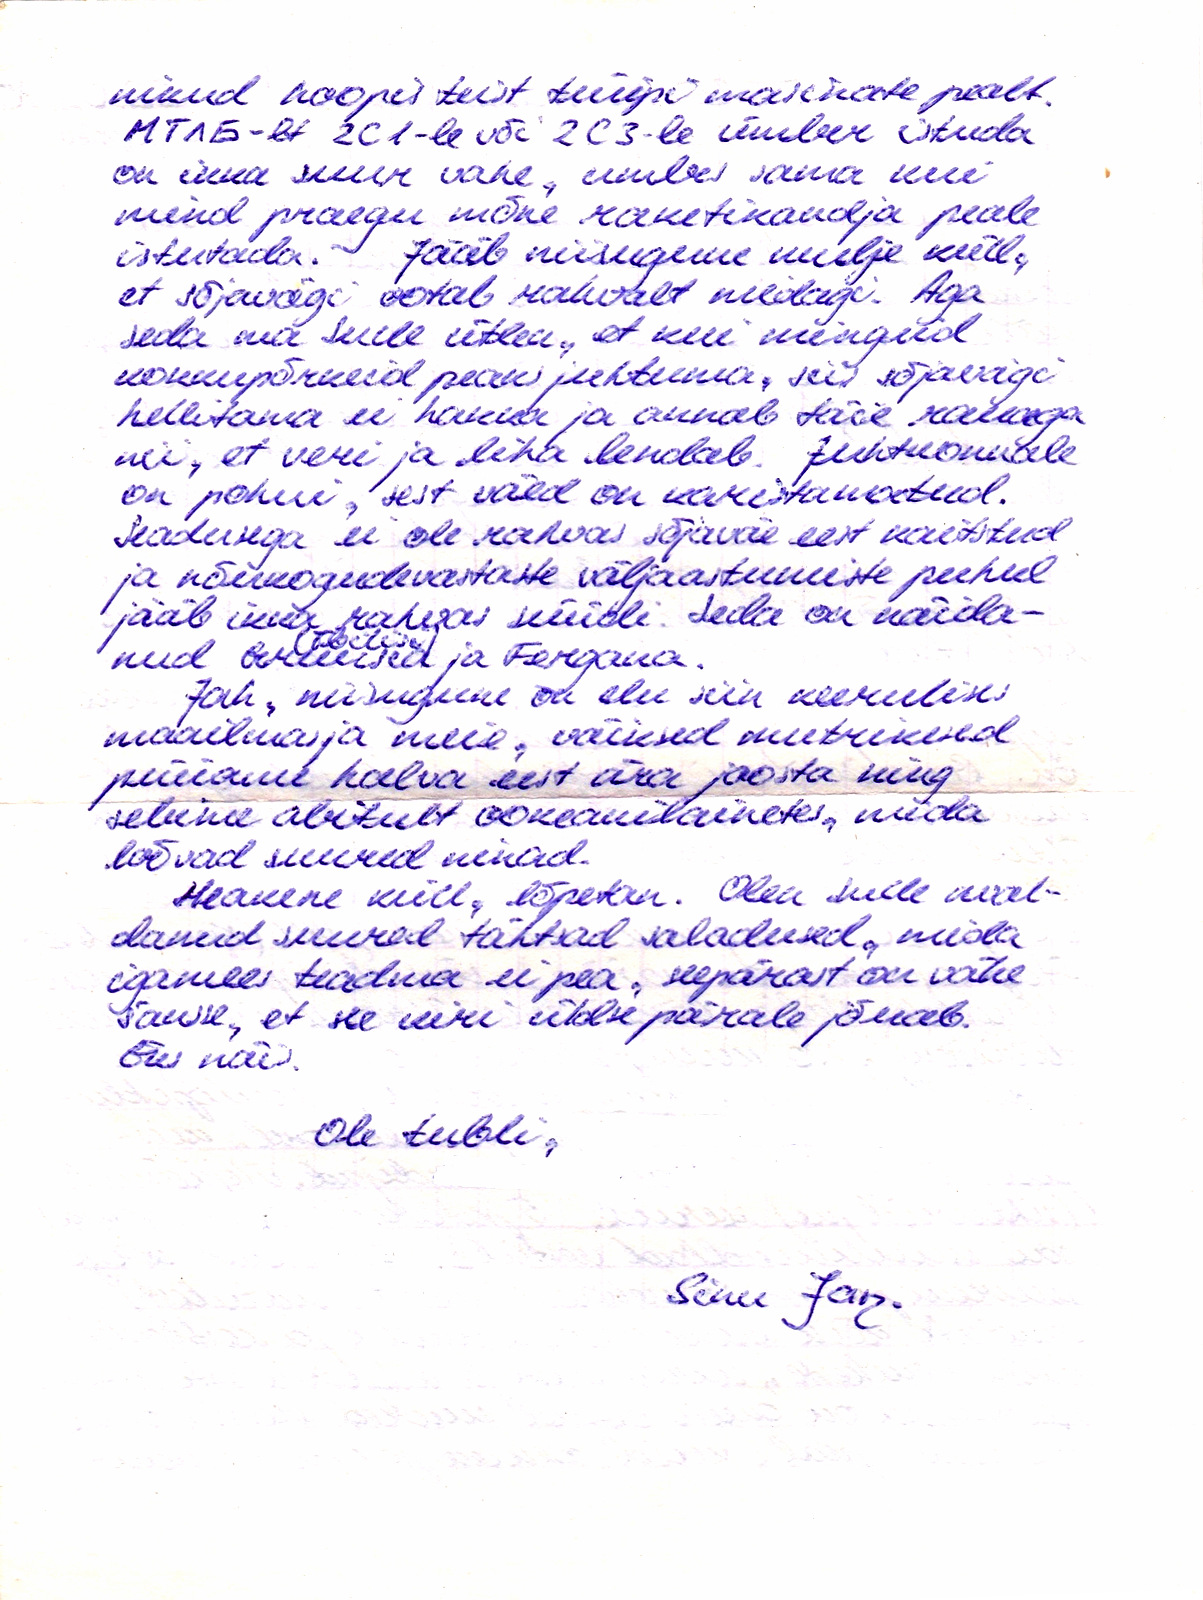 nimud hoopis teist tüüpi masinate pealt.
МТЛБ-lt 2С1-le või 2С3-le ümber istuda
on ikka suur vahe, umbes sama kui
mind praegu mõne raketikandja peale
istutada. Jääb niisugune mulje küll,
et sõjavägi ootab rahvalt midagi. Aga
seda ma Sulle ütlen, et kui mingeid
kokkupõrkeid peaks juhtuma, siis sõjavägi
hellitama ei hakka ja annab täie rauaga
nii, et veri ja liha lendab. Juhtkonnale
on pohui, sest väed on karistamatud.
Seadusega ei ole rahvas sõjaväe eest kaitstud
ja nõukogudevastaste väljaastumiste puhul
jääb ikka rahvas süüdi. Seda on näida-
(Tbilisi)
nud Gruusia ja Fergana.
Jah, niisugune on elu siin keerulises
maailmas ja meie, väiksed mutrikesed
püüame halva eest ära joosta ning
seleme abitult ookeanilainetes, mida
löövad suured ninad.
Heakene küll, lõpetan. Olen Sulle aval-
danud suured tähtsad saladused, mida
igamees teadma ei pea, seepärast on vähe
šansse, et see kiri üldse pärale jõuab.
Eks näis.
Ole tubli,
Sinu Jan.